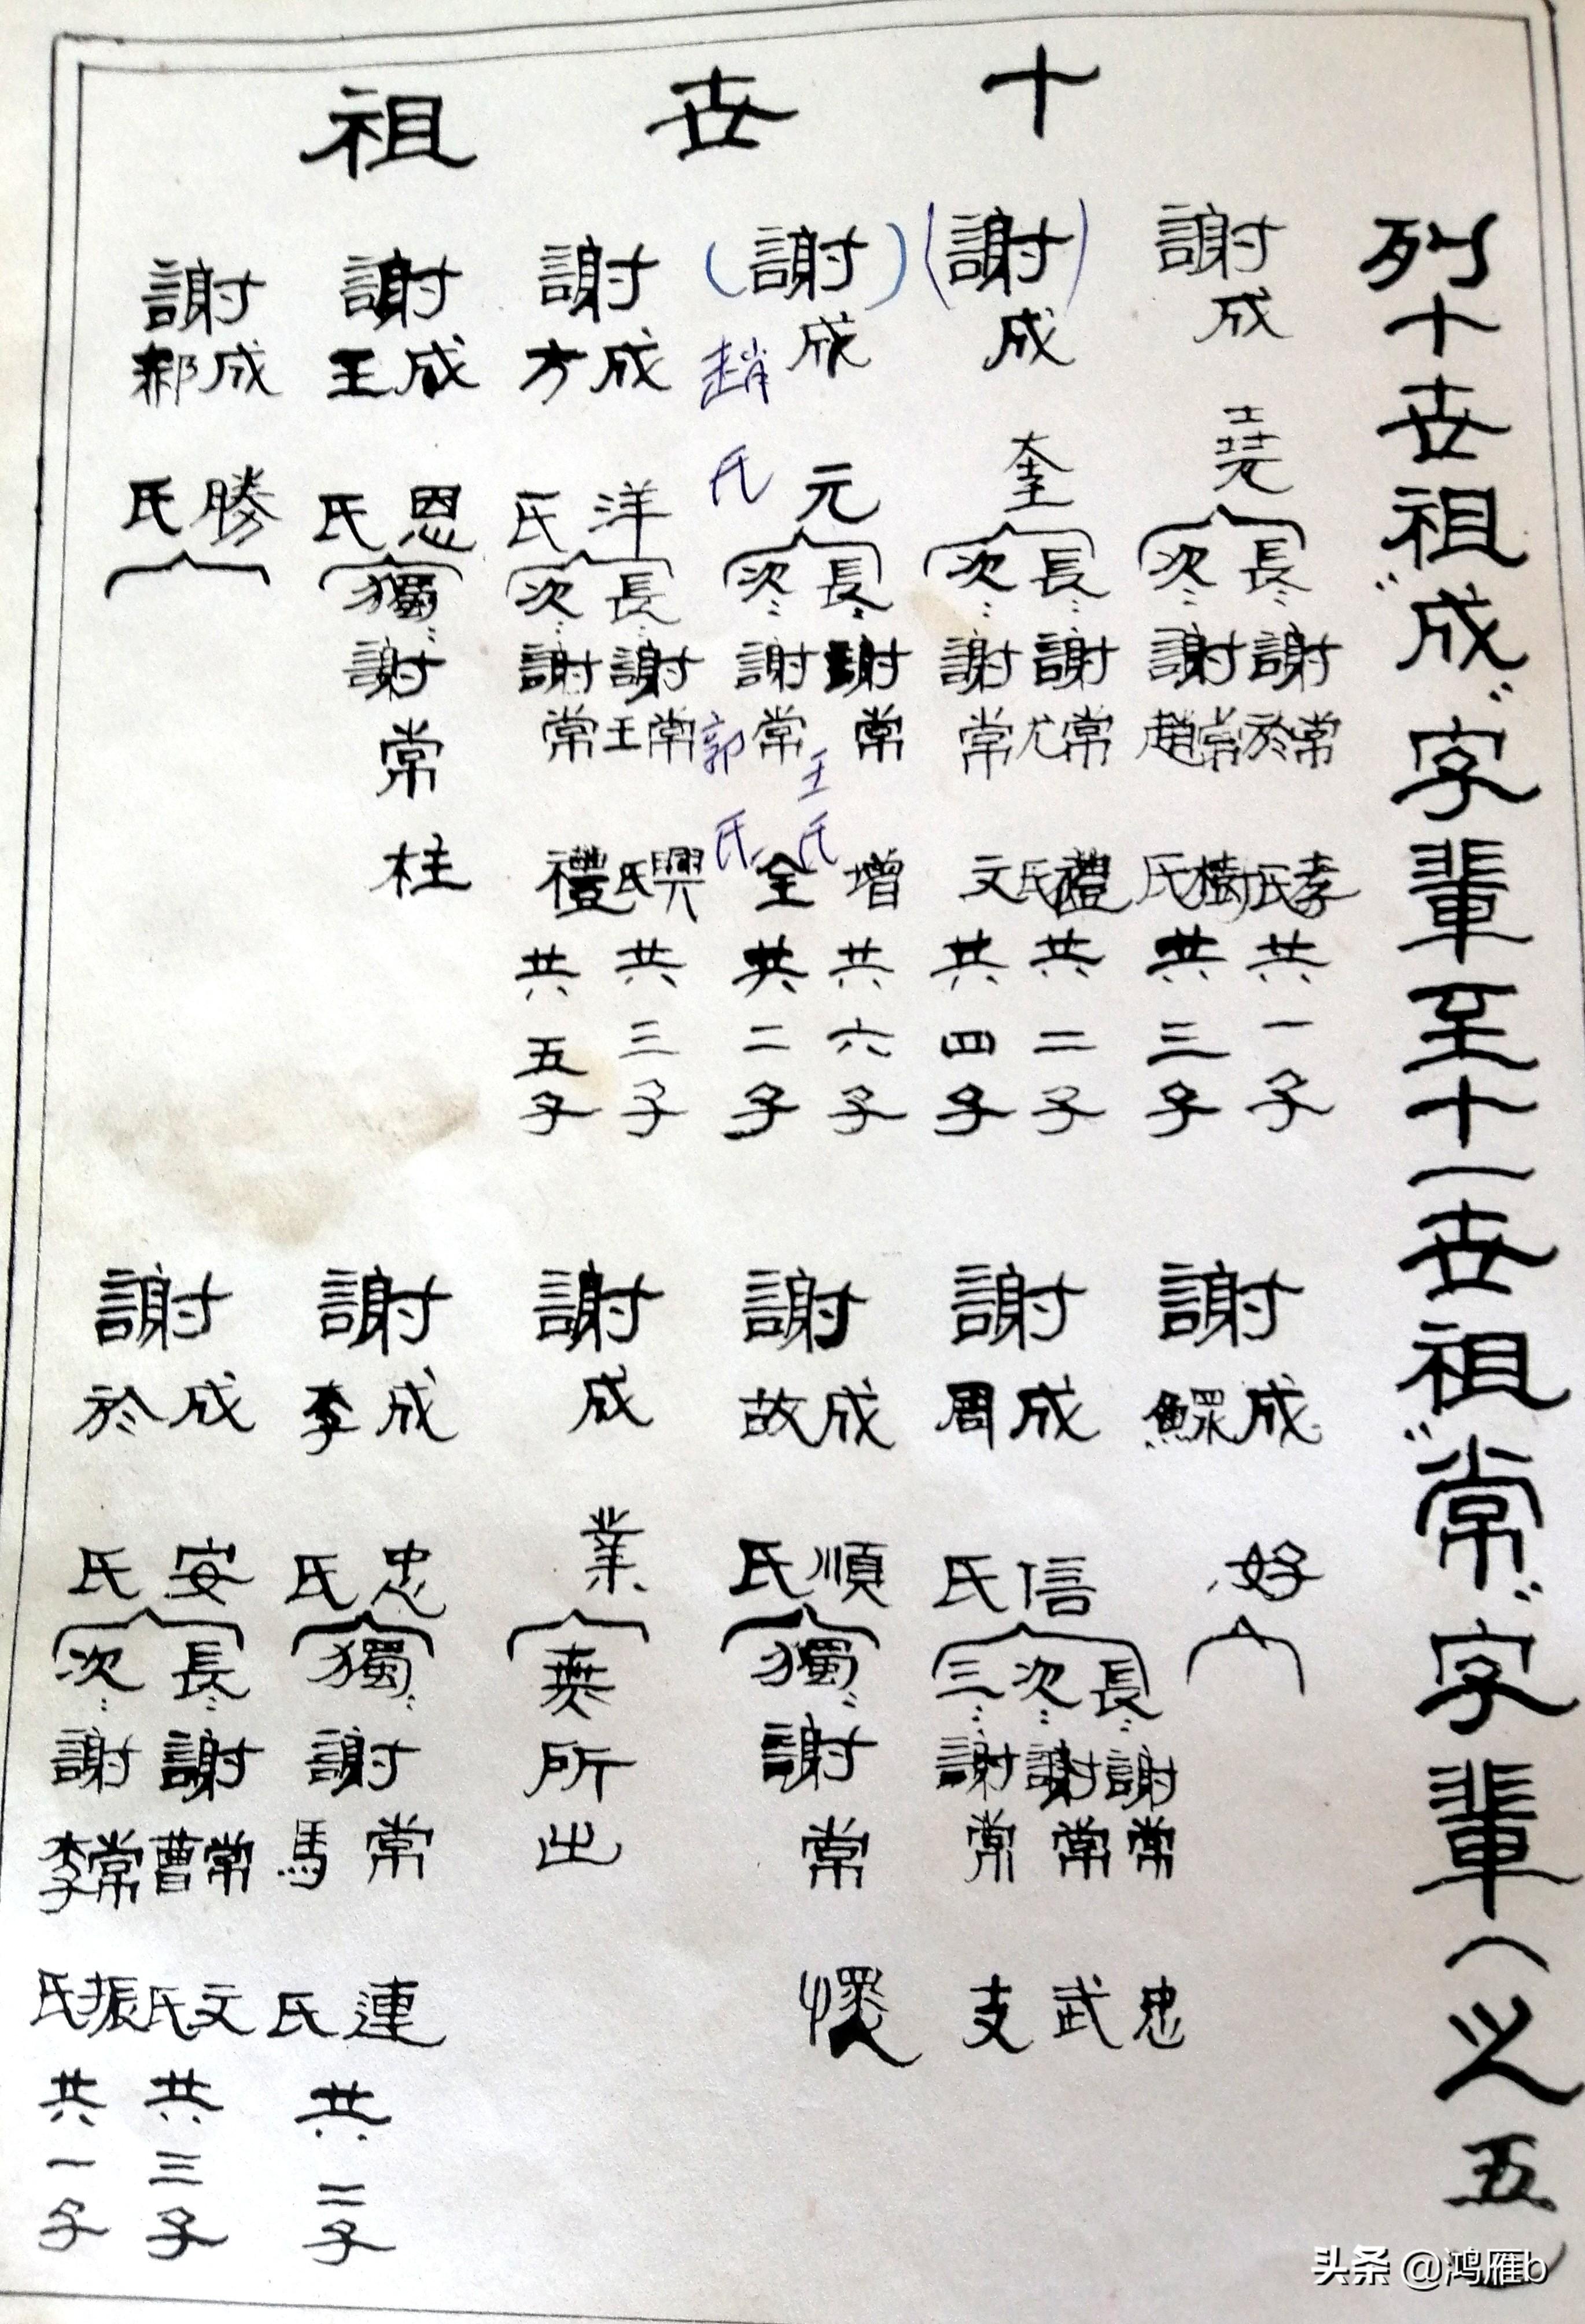 十世祖
列十世祖"成"字輩至十一世祖"常"字輩(之五)
謝成堯
長:謝常孝 於氏 共一子
次:謝常樹 趙氏 共三子
(謝)成奎
長:謝常禮 尤氏 共二子
次:謝常文 共四子
(謝)成元 趙氏
長:謝常增 王氏 共六子
次:謝常全 郭氏 共二子
謝成洋 方氏
長:謝常興 王氏 共三子
次:謝常禮 共五子
謝成恩 王氏
獨:謝常柱
謝成勝 郝氏
謝成好 鰥
謝成信 周氏
長:謝常忠
次:謝常武
三:謝常支
謝成順 故氏
獨:謝常
謝成業
無所出
謝成忠 李氏
獨:謝常連 馬氏 共二子
謝成安 於氏
長:謝常文 曹氏 共三子
次:謝常振 李氏 共一子
头条 @鸿雁b